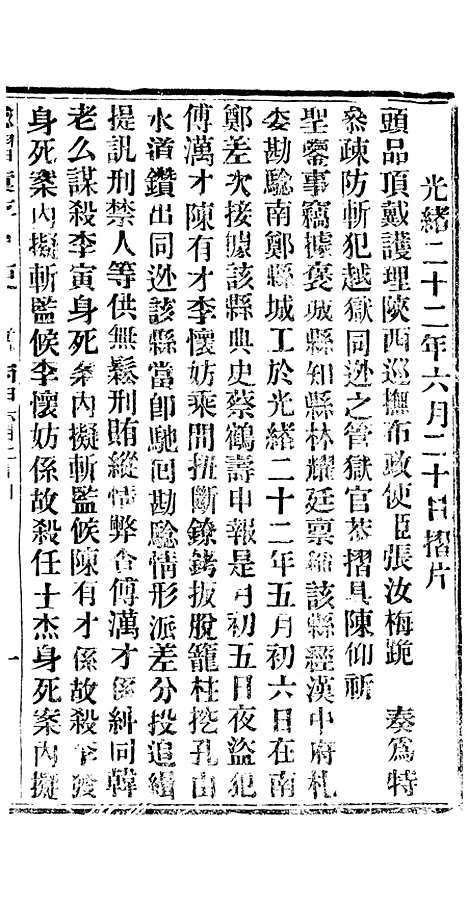 光緒二十二年六月二十日摺片
頭品頂戴護理陝西巡撫布政使臣張汝梅跪 奏爲特
叅疎防斬犯越獄同逃之管獄官恭摺具陳仰祈
聖鑒事竊據褒城縣知縣林耀廷稟稱該縣經漢中府札
委勘騐南鄭縣城工於光緒二十二年五月初六日在南
鄭差次接據該縣典史蔡鶴壽申報是月初五日夜盜犯
傅萬才陳有才李懷妨乘間扭斷鐐銬拔脫籠柱挖孔由
水溝鑽出同逃該縣當卽馳回勘騐情形派差分投追緝
提訊刑禁人等供無鬆刑賄縱情弊查傅萬才係糾同韓
老么謀殺李寅身死案內擬斬監候陳有才係故殺
身死案內擬斬監候李懷妨係故殺任士杰身死案內擬
一